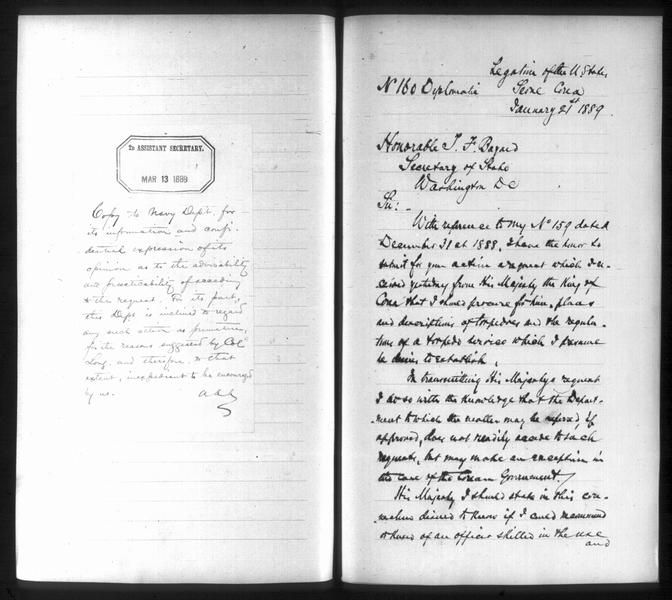 To ASSISTANT SECRETARY.
MAR 13 1889
Copy to Navy Dept. for
its information and confi-
dential expression of its
opinion as to the advisability
and practicability of acceding
to this request. For its part,
this Dept. is inclined to regard
any such action as premature,
for the reasons suggested by Col.
Long, and therefore, to that
extent, inexpedient to be encouraged
by us.
Legation of the U. States
Seoul Corea
January 21st 1889.
No 160 Diplomatic
Honorable T. F. Bayard
Secretary of State
Washington DC
Sir:-
With reference to my No 159 dated
December 31st 1888, I have the honor to
submit for your action a request which I re-
ceived yesterday from His Majesty the King of
Corea that I should procure for him, plans
and descriptions of torpedoes and the regula-
tions of a torpedo service which I presume
he desires to establish.
In transmitting His Majesty's request
I do so with the knowledge that the Depart-
ment to which the matter may be referred, if
approved, does not readily accede to such
requests, but may make an exception in
the case of the Corean Government.
His Majesty I should state in this con-
nection desired to know if I could recommend
or knew of an officer skilled in the use
and